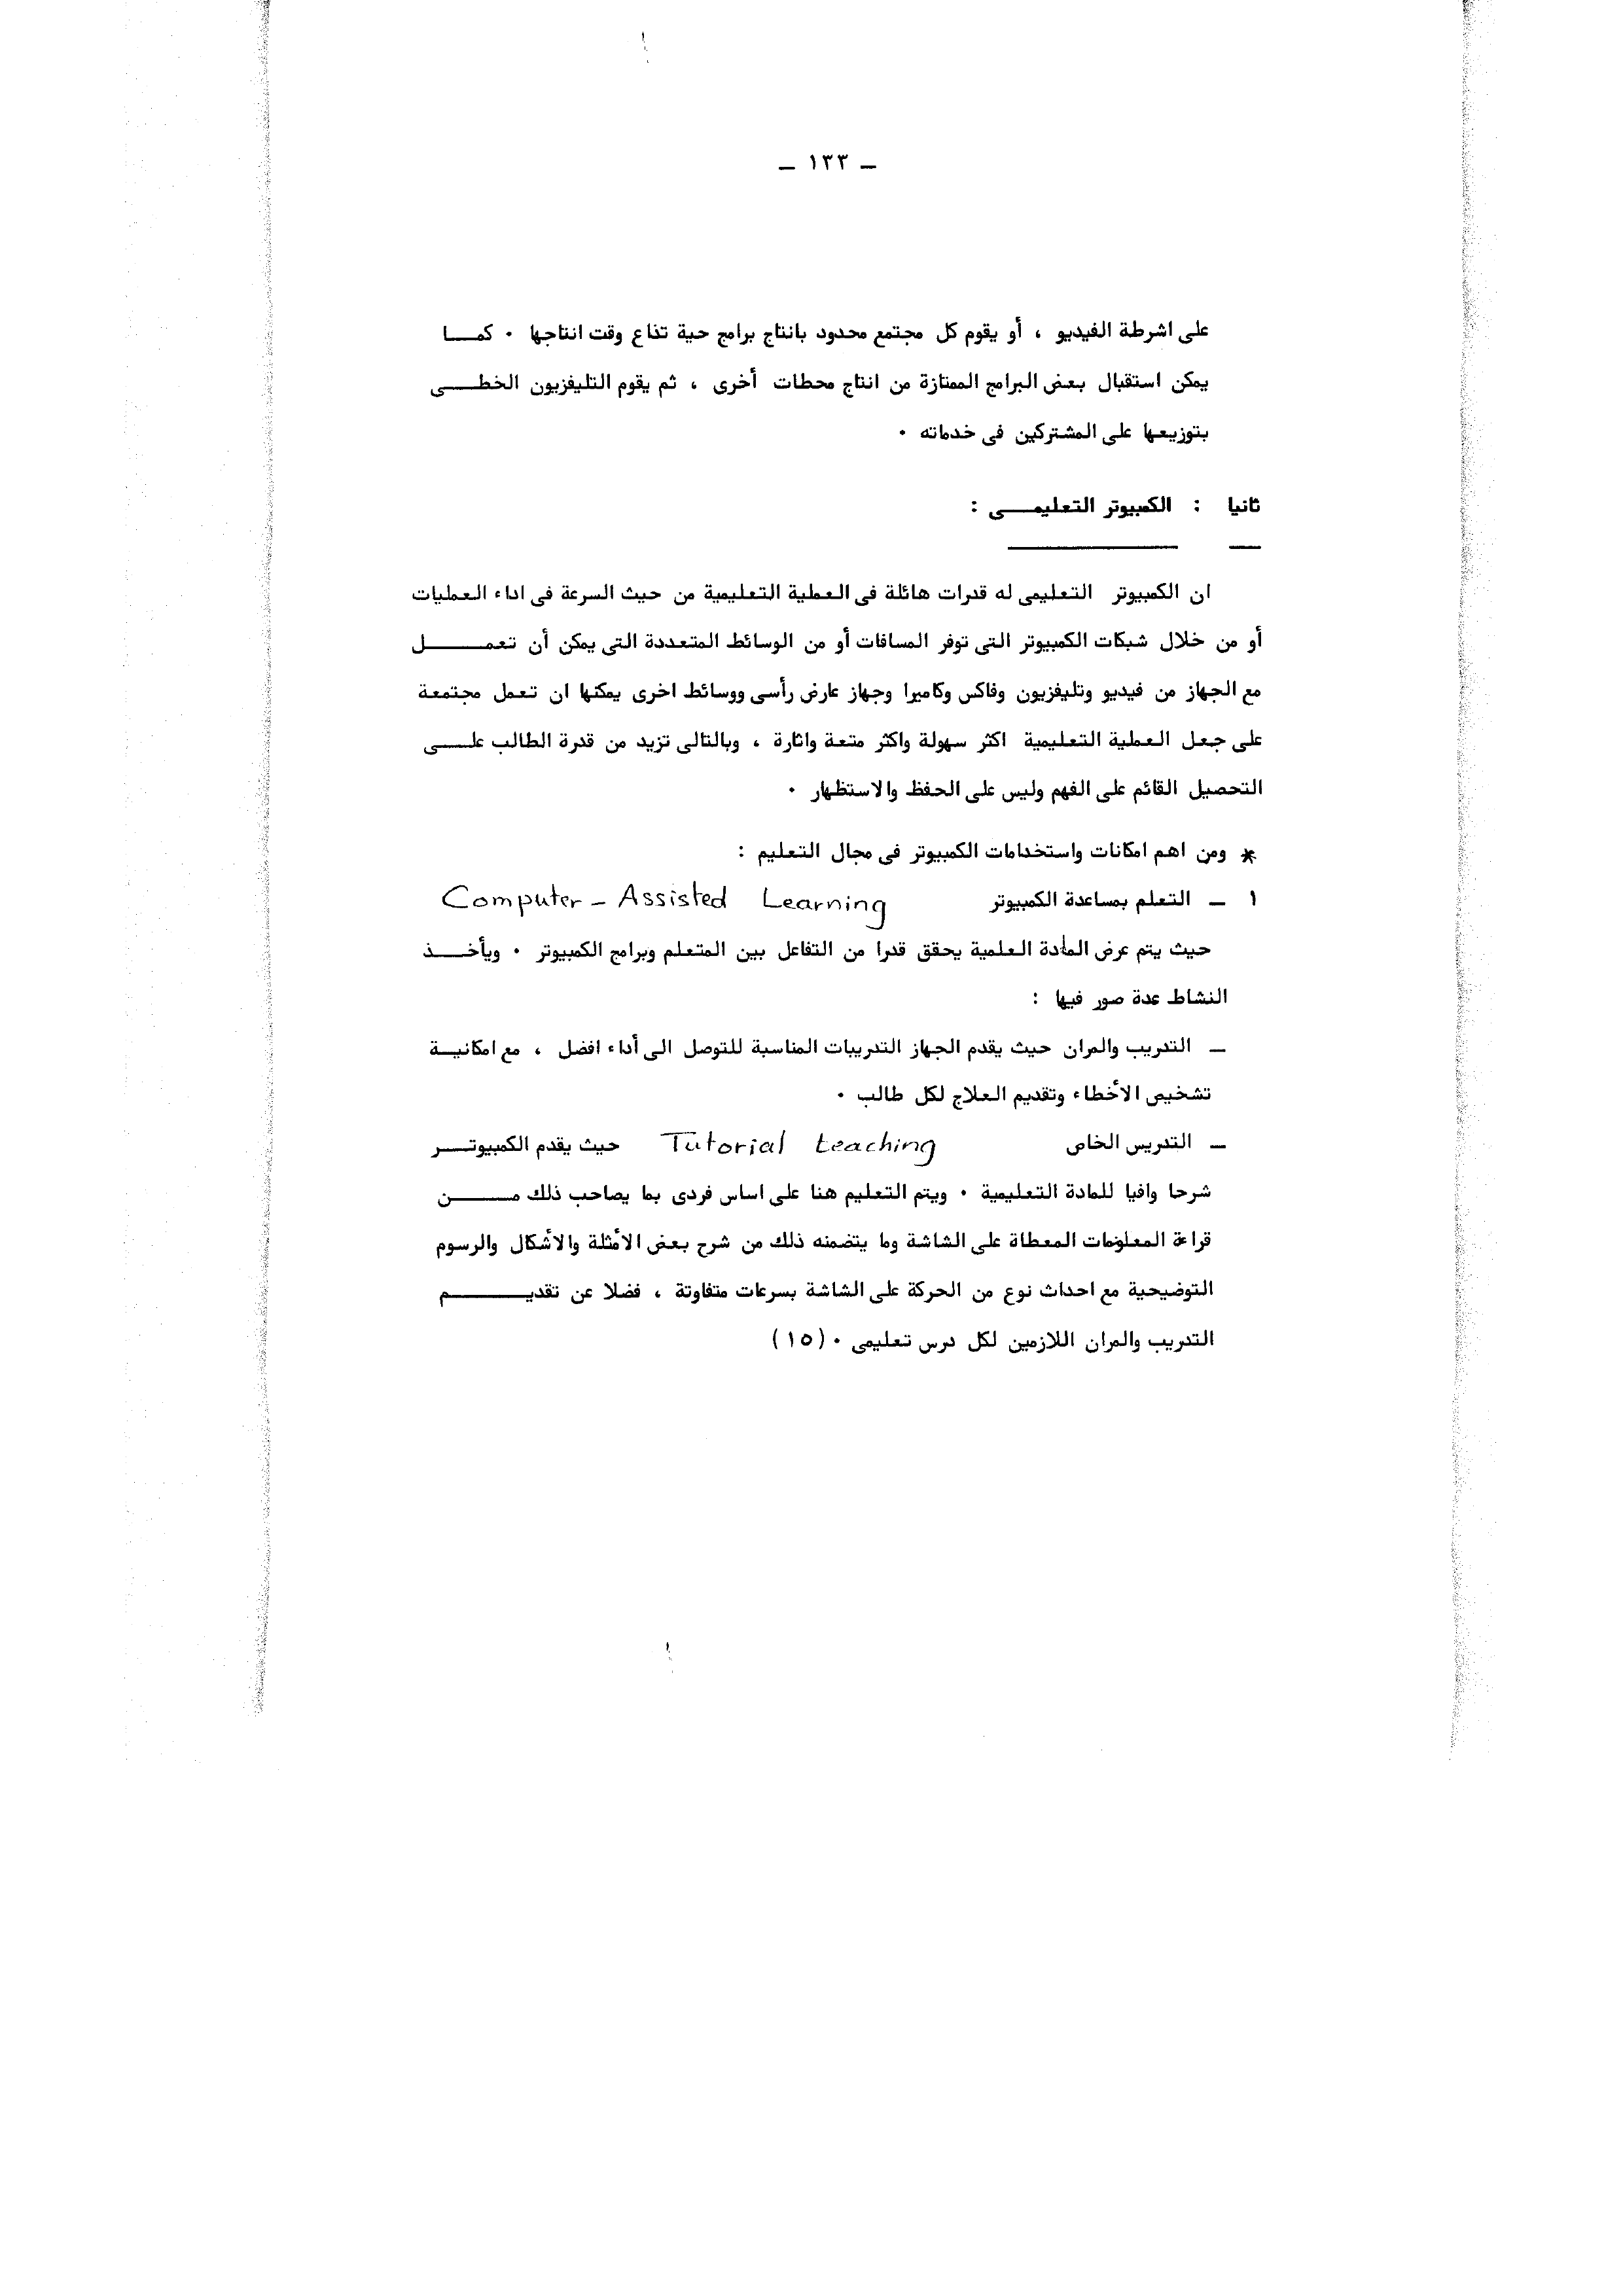 ـ ١٣٣ ـ
على اشرطة الفيديو ، أو يقوم كل مجتمع محدود بانتاج برامج حية تذاع وقت انتاجها ٠ كمـــا
يمكن استقبال بعض البرامج الممتازة من انتاج محطات أخرى ، ثم يقوم التليفزيون الخطـــى
بتوزيعها على المشتركين فى خدماته ٠
ثانيا : الكمبيوتر التعليمـــى :
ان الكمبيوتر التعليمى له قدرات هائلة فى العملية التعليمية من حيث السرعة فى اداء العمليات
أو من خلال شبكات الكمبيوتر التى توفر المسافات أو من الوسائط المتعددة التى يمكن أن تعمـــل
مع الجهاز من فيديو وتليفزيون وفاكس وكاميرا وجهاز عارض رأسى ووسائط اخرى يمكنها ان تعمل مجتمعة
على جعل العملية التعليمية اكثر سهولة واكثر متعة واثارة ، وبالتالى تزيد من قدرة الطالب علـــى
التحصيل القائم على الفهم وليس على الحفظ والاستظهار ٠
* ومن اهم امكانات واستخدامات الكمبيوتر فى مجال التعليم :
١ ـ التعلم بمساعدة الكمبيوتر Computer - Assisted Learning
حيث يتم عرض المادة العلمية يحقق قدرا من التفاعل بين المتعلم وبرامج الكمبيوتر ٠ ويأخـــذ
النشاط عدة صور فيها :
ـ التدريب والمران حيث يقدم الجهاز التدريبات المناسبة للتوصل الى أداء افضل ، مع امكانيـة
تشخيص الأخطاء وتقديم العلاج لكل طالب ٠
ـ التدريس الخاص Tutorial teaching حيث يقدم الكمبيوتـــر
شرحا وافيا للمادة التعليمية ٠ ويتم التعليم هنا على اساس فردى بما يصاحب ذلك مـــن
قراءة المعلومات المعطاة على الشاشة وما يتضمنه ذلك من شرح بعض الأمثلة والأشكال والرسوم
التوضيحية مع احداث نوع من الحركة على الشاشة بسرعات متفاوتة ، فضلا عن تقديـــم
التدريب والمران اللازمين لكل درس تعليمى ٠ (١٥)